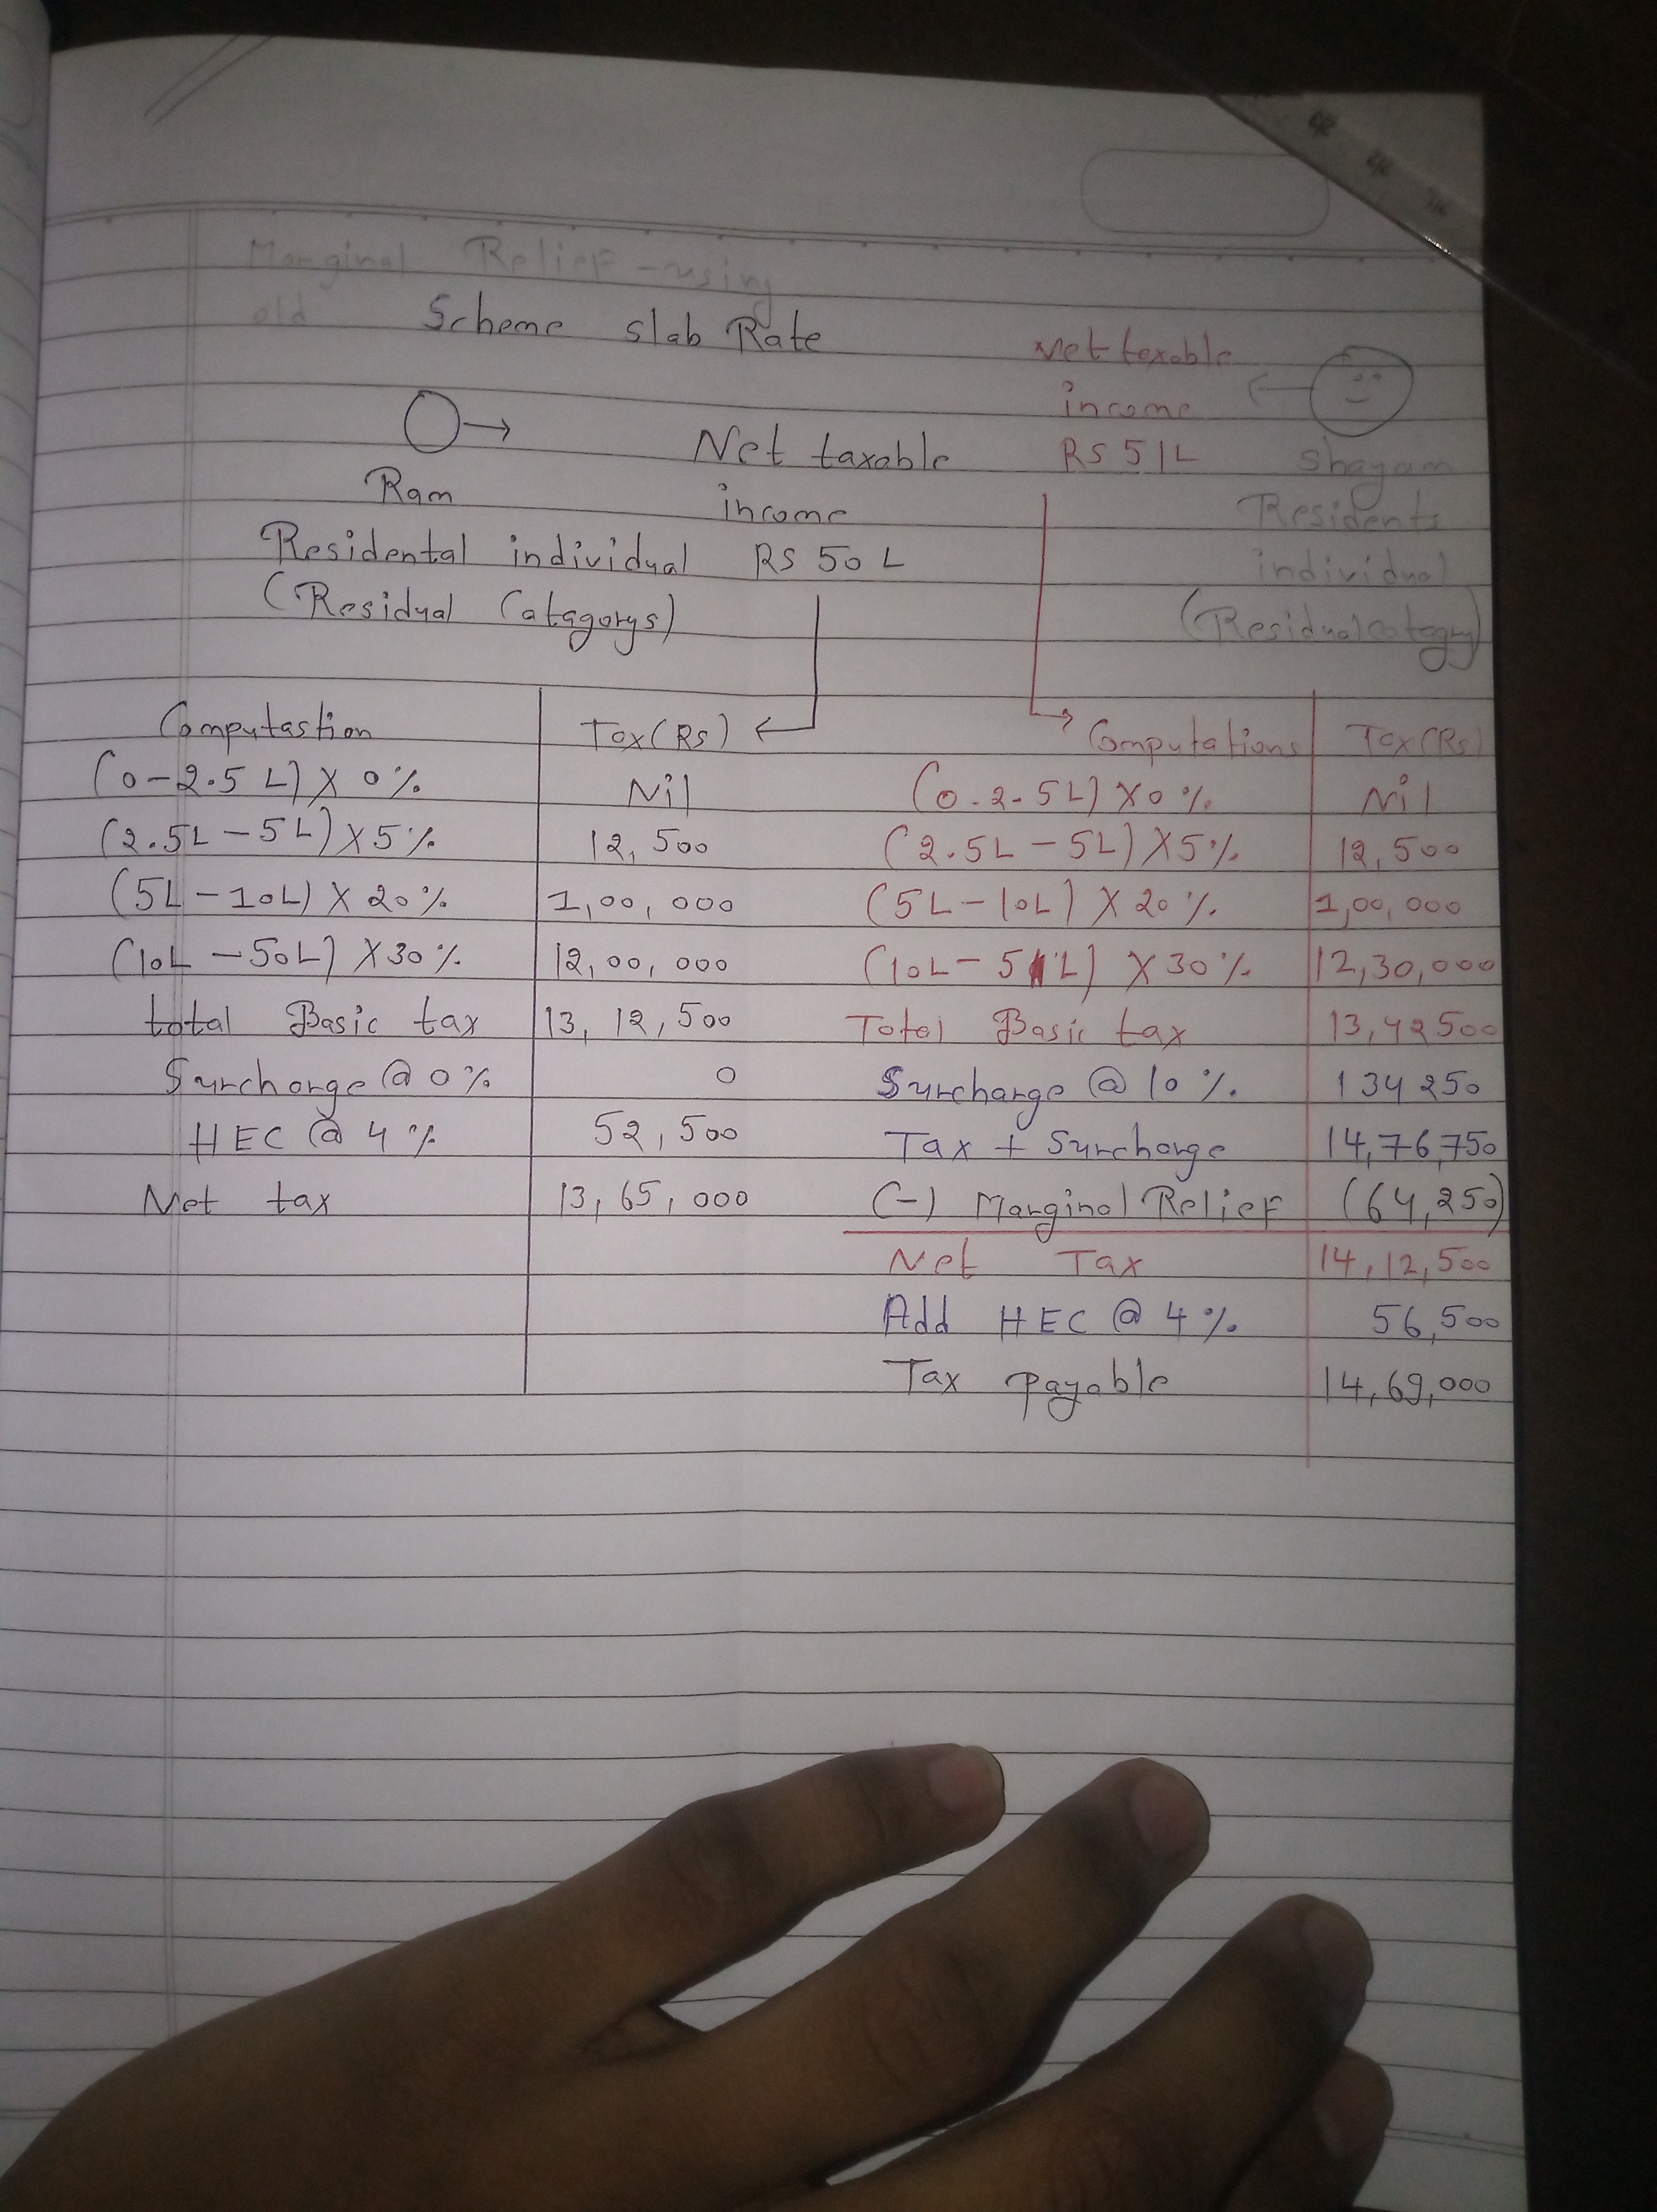 Marginal Relief - using
old Scheme slab Rate
Net taxable
income
RS 51L
Shayam
Residents
individual
(Residual categry)
Ram
Net taxable
income
Residental individual RS 50 L
(Residual Catagorys)
Computastion Tax (Rs)
(0-2.5 L) X 0% Nil
(2.5L - 5L) X 5% 12,500
(5L - 10L) X 20% 1,00,000
(10L - 50L) X 30% 12,00,000
total Basic tax 13,12,500
Surcharge @ 0% 0
HEC @ 4% 52,500
Net tax 13,65,000
Computations Tax (Rs)
(0-2-5L) X 0% Nil
(2.5L - 5L) X 5% 12,500
(5L - 10L) X 20% 1,00,000
(10L - 51L) X 30% 12,30,000
Total Basic tax 13,42500
Surcharge @ 10% 134250
Tax + Surcharge 14,76,750
(-) Marginal Relief (64,250)
Net Tax 14,12,500
Add HEC @ 4% 56,500
Tax payable 14,69,000